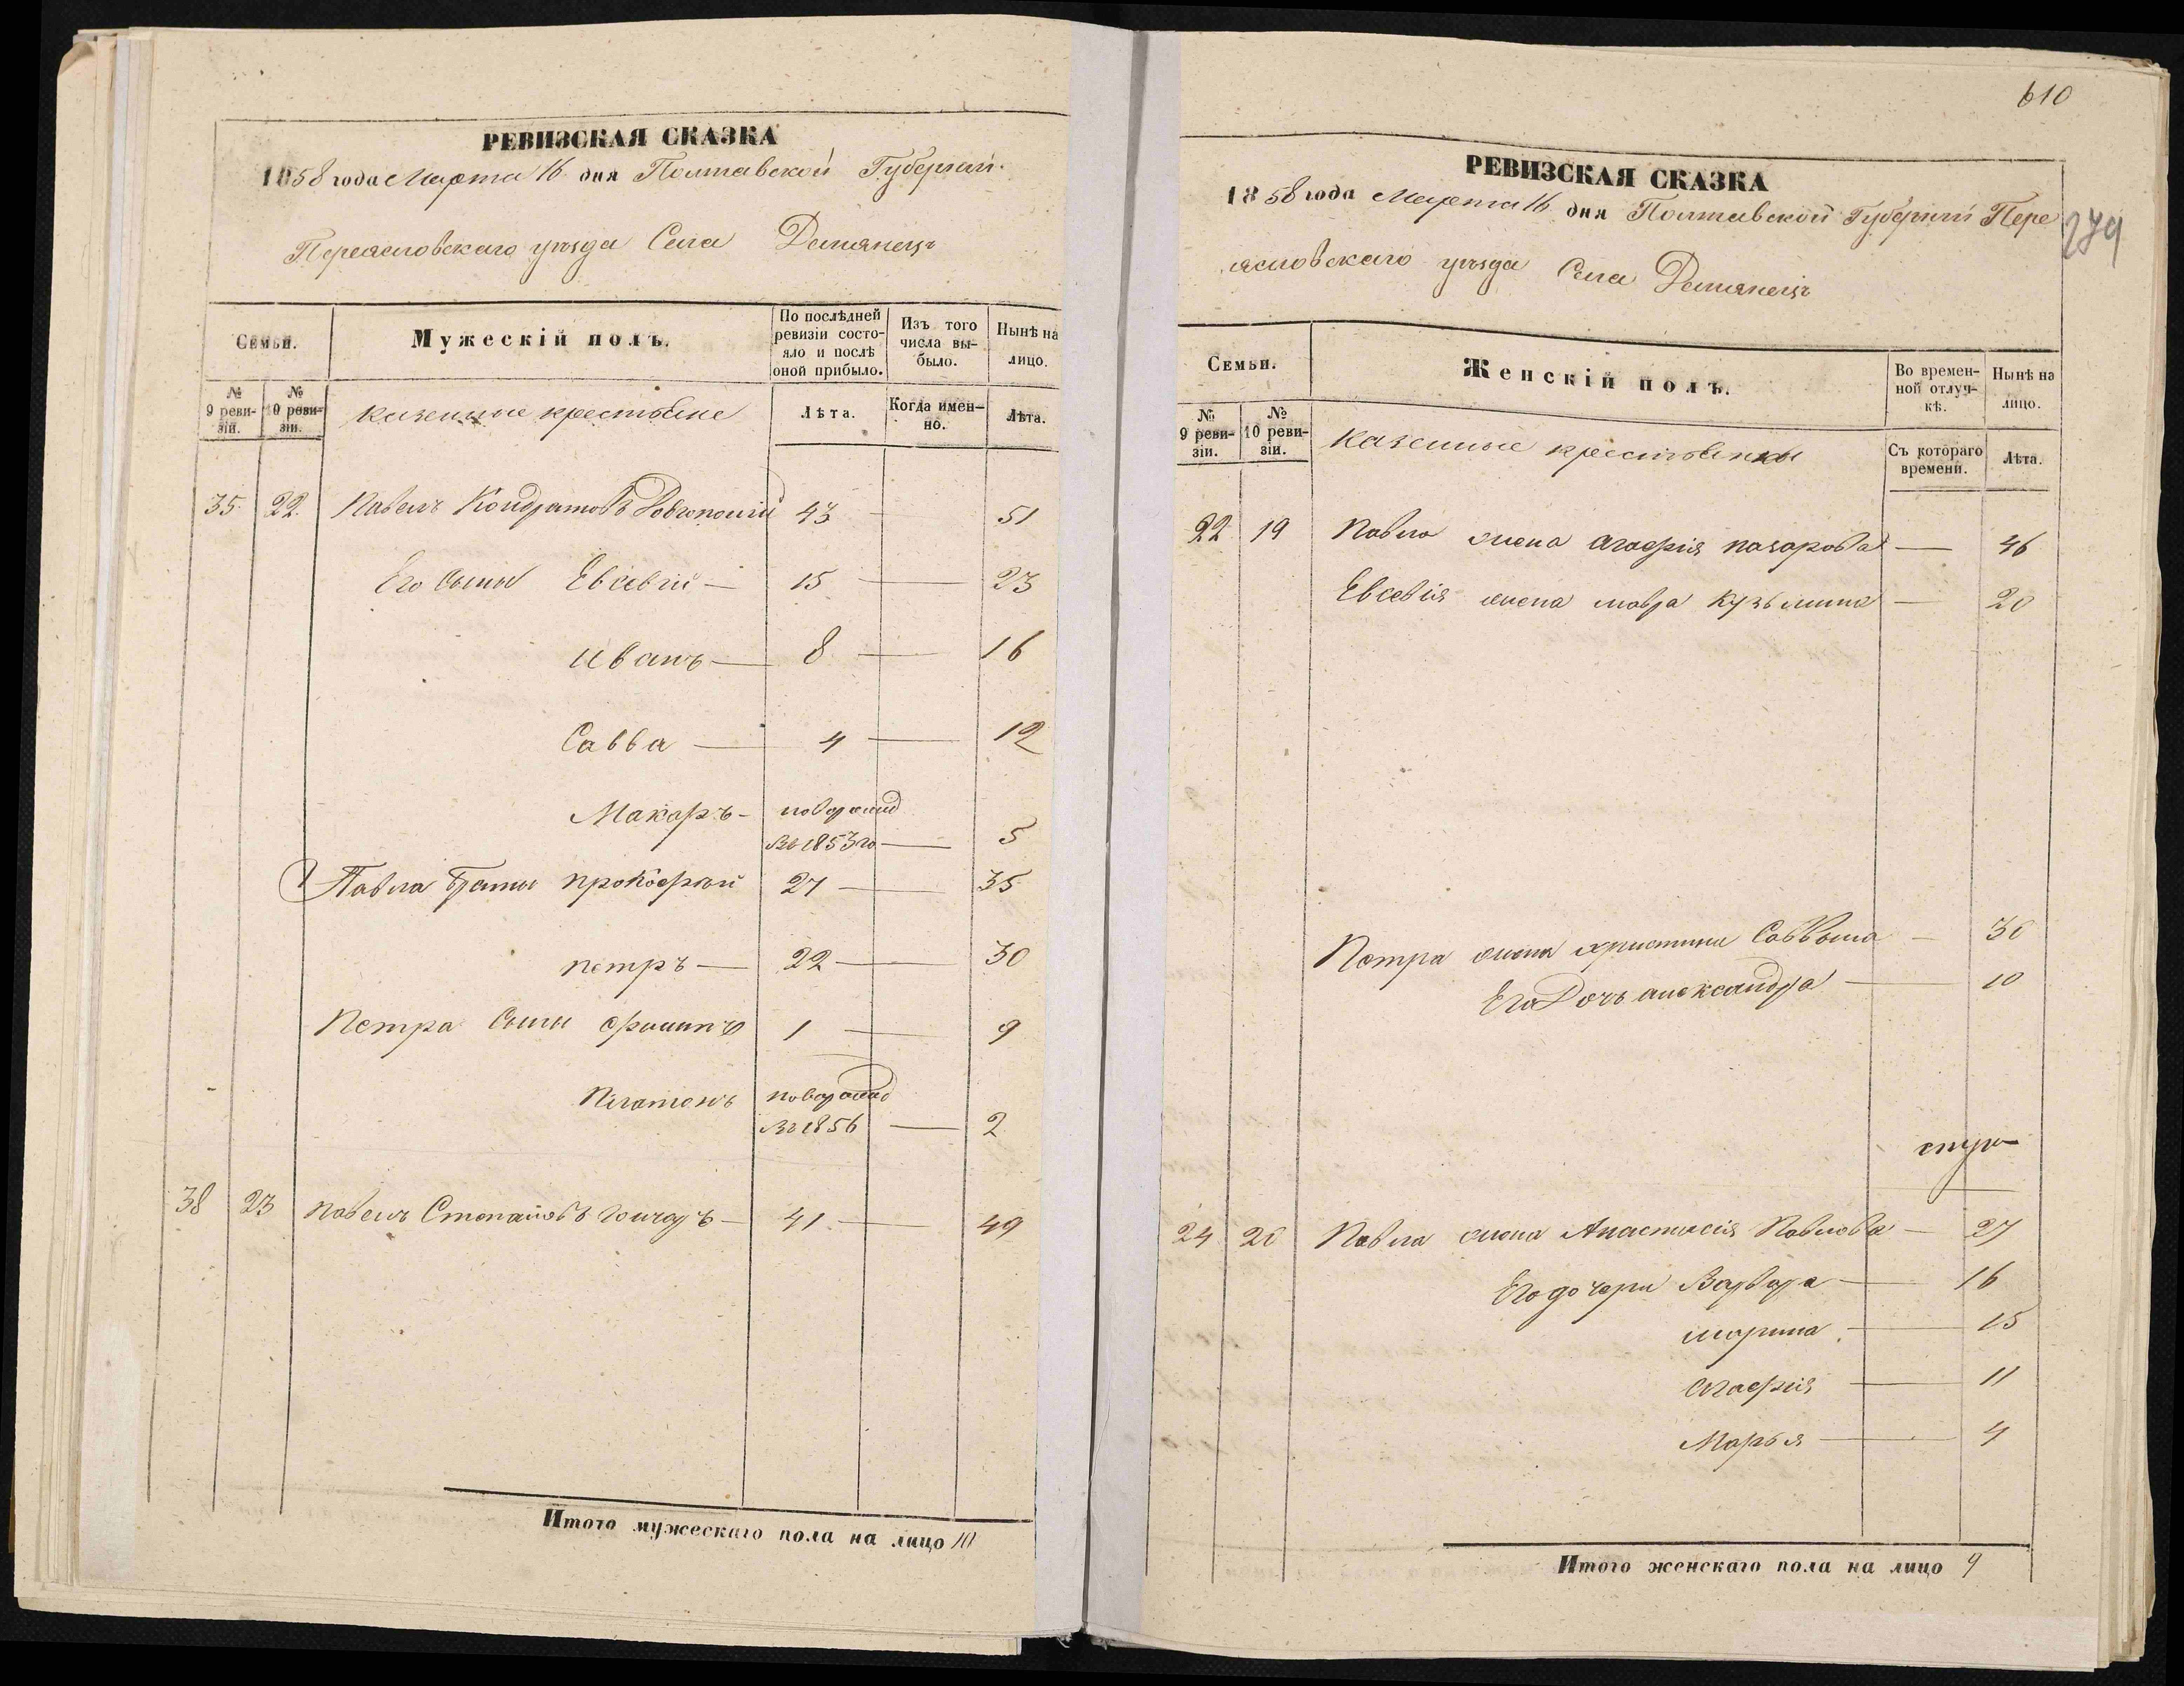 РЕВИЗСКАЯ СКАЗКА
1858 года Марта 16 дня Полтавской Губерніи
Переясловскаго уѣзда Села Демянецъ
Семьи.
Мужескій полъ.
По послѣдней ревизіи состояло и послѣ оной прибыло.
Изъ того числа выбыло.
Нынѣ на лицо.
№ 9 ревизіи.
№ 10 ревизіи.
казенные крестьяне
Лѣта.
Когда именно.
Лѣта.
35 22 Павелъ Кондратовъ 43 51
Его сыны Евсевій — 15 — 23
Иванъ — 8 — 16
Савва — 4 — 12
Макаръ - новорожд
въ 1853 го — 5
Павла браты Прокофій 27 — 35
Петръ — 22 — 30
Петра сыны Филипъ 1 — 9
Платонъ новорожд
въ 1856 — 2
38 23 Павелъ Степановъ Гончаръ — 41 — 49
Итого мужескаго пола на лицо 10
610
279
РЕВИЗСКАЯ СКАЗКА
1858 года Марта 16 дня Полтавской Губерніи Пере
ясловскаго уѣзда Села Демянецъ
Семьи.
Женскій полъ.
Во временной отлучкѣ.
Нынѣ на лицо.
№ 9 ревизіи.
№ 10 ревизіи.
казенные крестьянки
Съ котораго времени.
Лѣта.
22 19 Павла жена Агафія Назарова — 46
Евсевія жена Мавра Кузьмина — 20
Петра жена Христина Саввина — 30
Его Дочь Александра — 10
24 20 Павла жена Анастасія Павлова — 27
Его дочери Варвара — 16
Марина — 15
Агафія — 11
Марья — 4
Итого женскаго пола на лицо 9